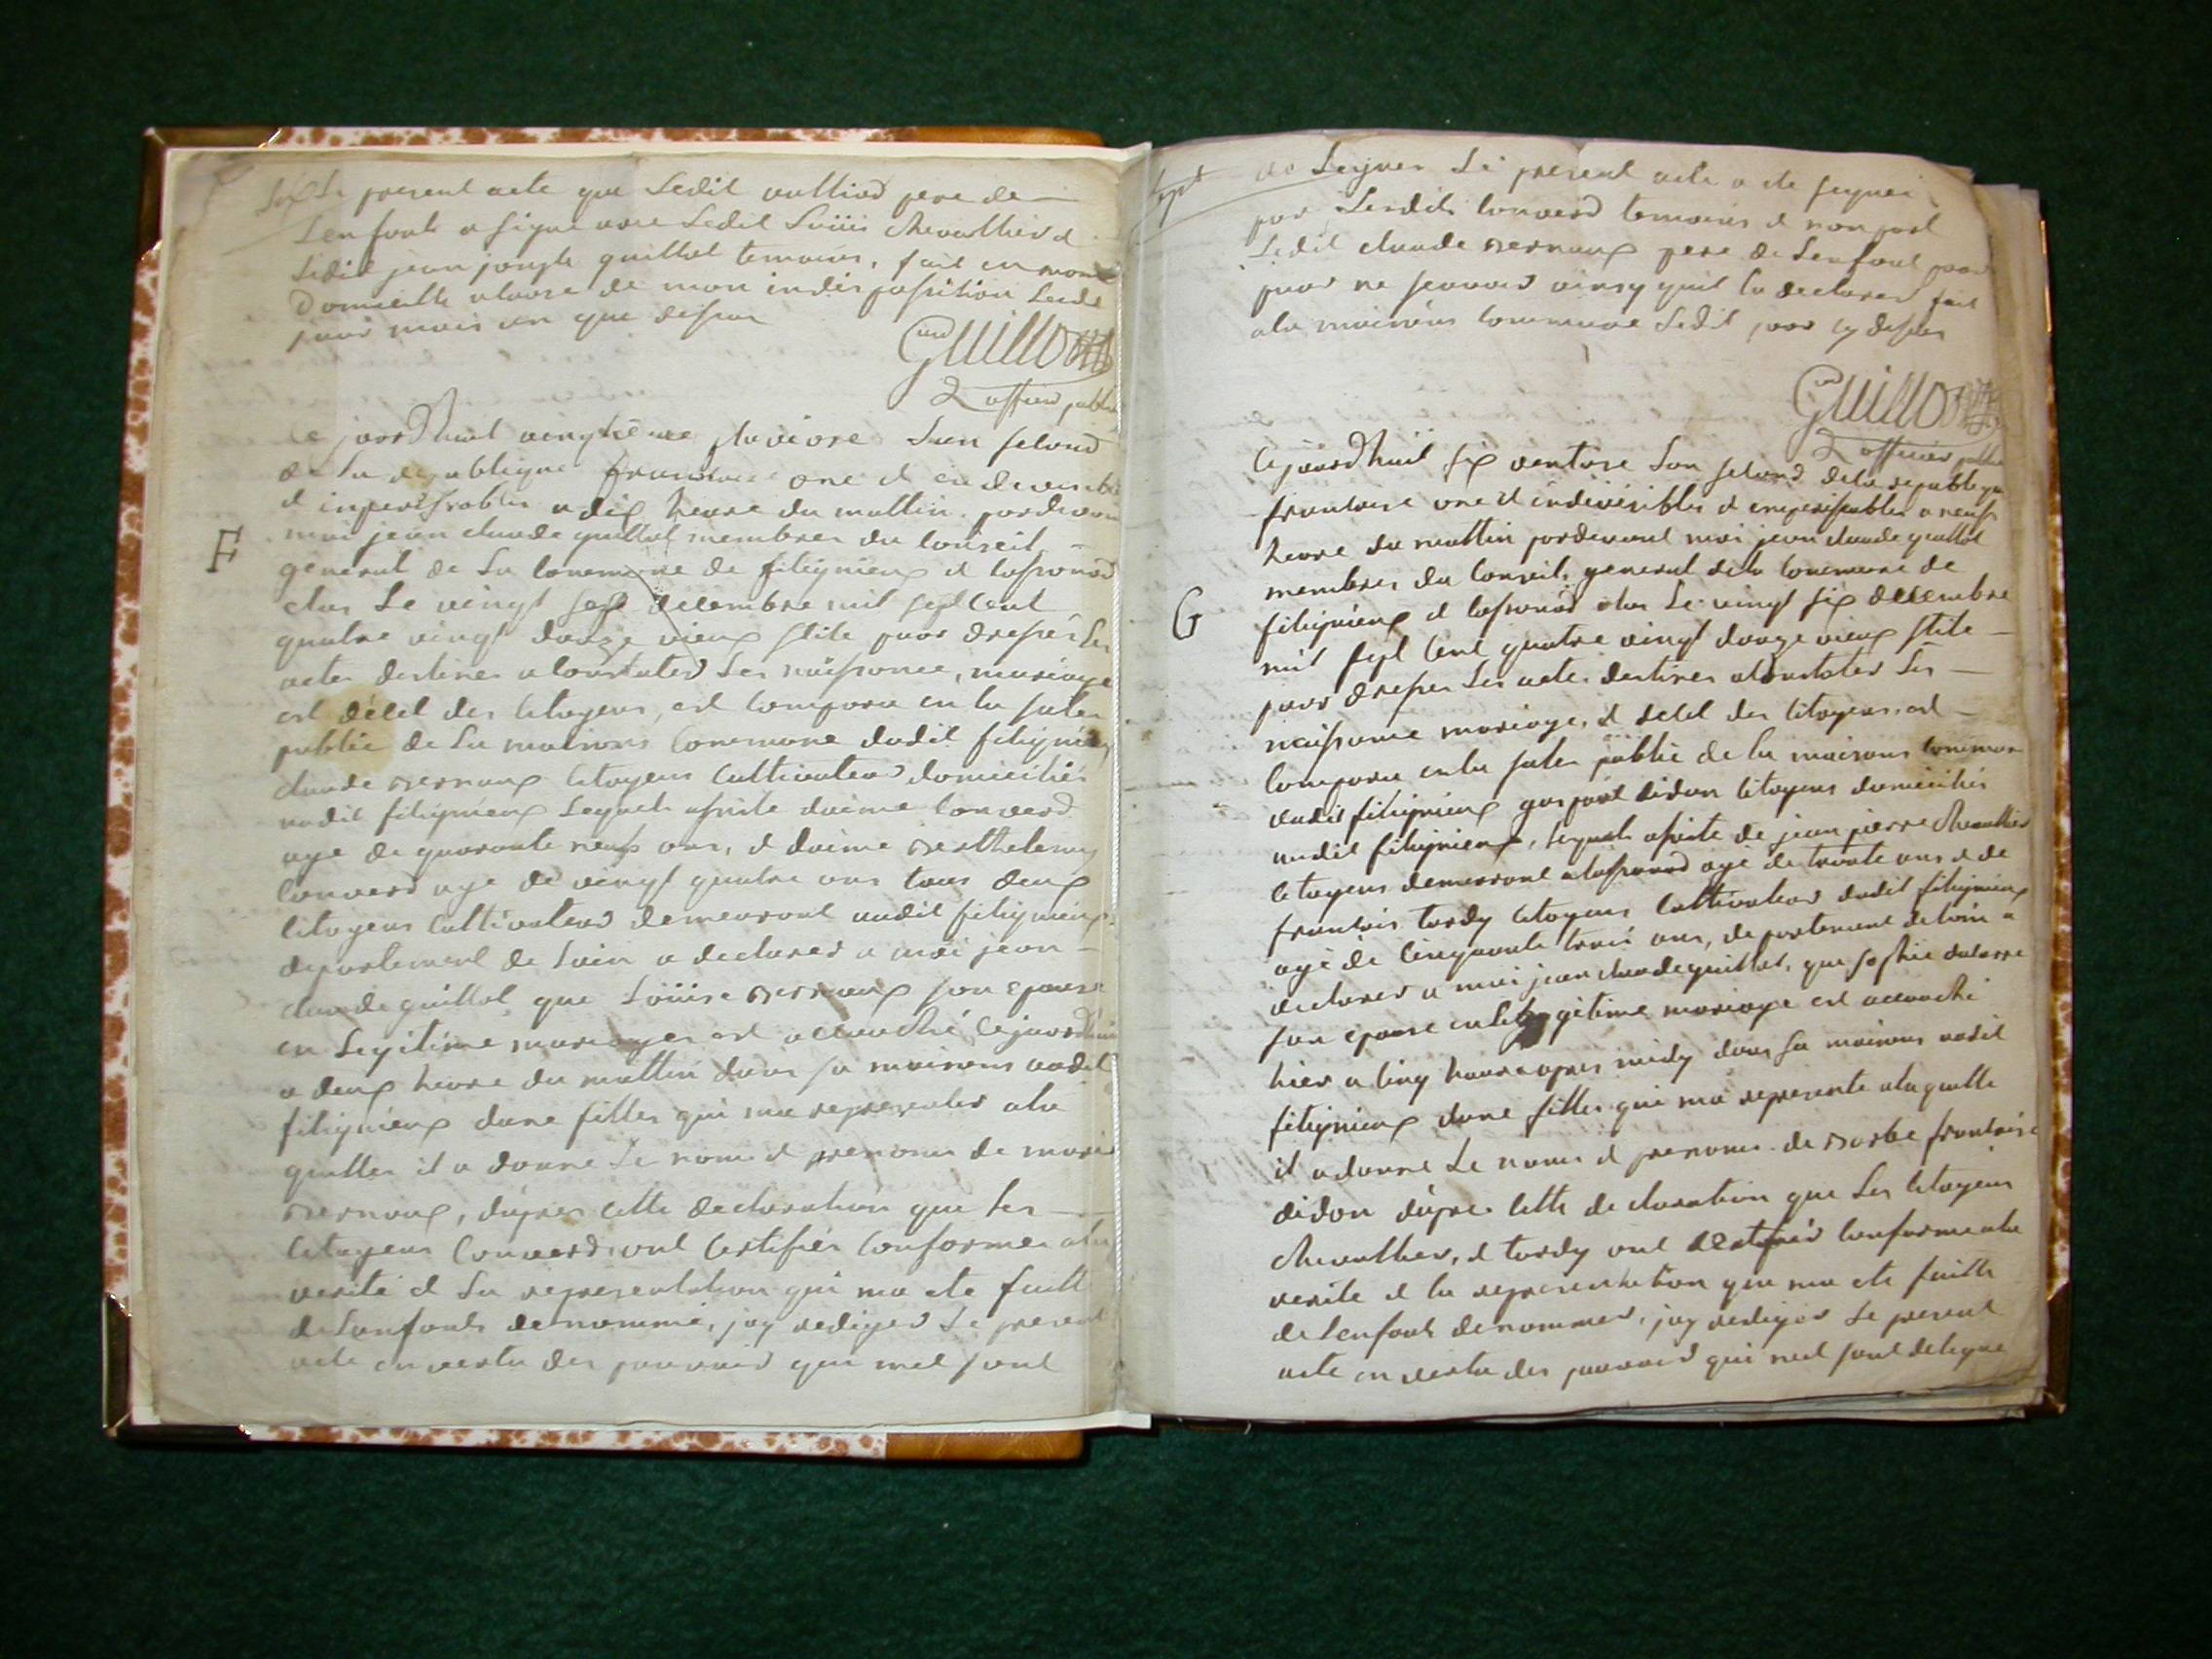 six
Le present acte que Ledit vulliod pere de
Lenfants a signé avec Ledit Loüiis chevalliers et
Ledit jean joseph guillot temoins, fait en mons
domicille a cause de mon indisposition Ledit
jours mois an que dessus
Guillot
officier public
F
Ce jourd'huit vingtième pluviose Lan second
de La republique francoise une et indivisible
et imperissables a dix heure du mattin pardevant
moi jean claude guillot membres du conseil
general de La commune de fitignieux et
elus Le vingt sept decembre mil sept cent
quatre vingt douze vieux stile pour dresser Les
actes destines a constater Les naissance, mariage
est décet des citoyens, est comparu en la salles
public de La maisons commune dudit fitignieux
claude Bernaux citoyens cultivateurs domicilier
audit fitignieux Lequels assiste daime convers
age de quarante neufs ans, et daime Berthelemy
convers age de vingt quatre ans tous deux
citoyens cultivateurs demeurant audit fitignieux
departement de Lain a declarer a moi jean
claude guillot que Loüise Bernaux son epouse
en Legitime mariages est accouché cejourdhuit
a deux heure du mattin dans sa maisons audit
fitignieux dune filles qui ma representer a la
quelles il a donne Le nom et prenoms de marie
Bernaux, dapres cette declaration que Les
citoyens convers ont certifier conformes a la
verité et La representation qui ma ete fuitt
de Lenfants denommé, jay rediger Le present
acte en vertu des pouvoirs qui mel sont
sept
Seigner Le present acte a ete seigner
par Lesdits convers temoins et non pas
Ledit claude Bernaux pere de Lenfant pour
pour ne scavoir ainsy quil la declarer fait
a la maisons commune Ledit jour cy dessus
Guillot
officier public
G
Cejourdhuit six ventose Lan second dela republique
francoise une et indivisibles et imperissables a neufs
heure du mattin pardevant moi jean claude guillot
membres du conseil general dela commune de
fitignieux et elus Le vingt six decembre
mil sept cent quatre vingt douze vieux stile
pour dresser Les actes destines a constater Les
naissance mariage, et decet des citoyens est
comparu en la salles public de la maisons commune
dudit fitignieux gaspard didon citoyens domicilier
audit fitignieux, lequels assiste de jean pierre chevallier
citoyens demeurant age de trante ans et de
francois tardy citoyens cultivateurs dudit fitignieux
agé de cinquante trois ans, departement de Lain a
declarer a moi jean claude guillot, que sophie
son epouse en Legitime mariage est accouché
hier a cinq heure apres midy dans sa maisons audit
fitignieux dune filles qui ma represente a laquelle
il a donne Le noms et prenoms de Barbe francoise
didon dapres cette declaration que Les citoyens
chevallier, et tardy ont conforme a la
verite et la representation que ma ete faitte
de Lenfants denommer, jay rediger Le present
acte en vertu des pouvoirs qui mel sont delegue